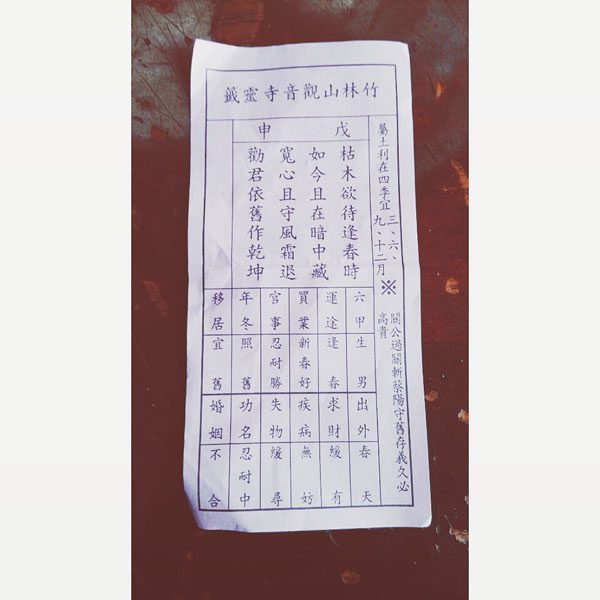 竹林山觀音寺靈籤
屬土利在四季宜三、六、九、十二月※
關公過關斬蔡陽守舊存義久必高貴
戊申
枯木欲待逢春時
如今且在暗中藏
寬心且守風霜退
勸君依舊作乾坤
六甲 生男 出外 春天
運途 逢春 求財 緩有
買業 新春好 疾病 無妨
官事 忍耐勝 失物 緩尋
年冬 照舊 功名 忍耐中
移居 宜舊 婚姻 不合